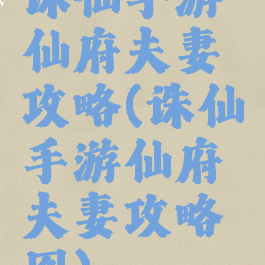 诛仙手游
仙府夫妻
攻略(诛仙
手游仙府
夫妻攻略
图)